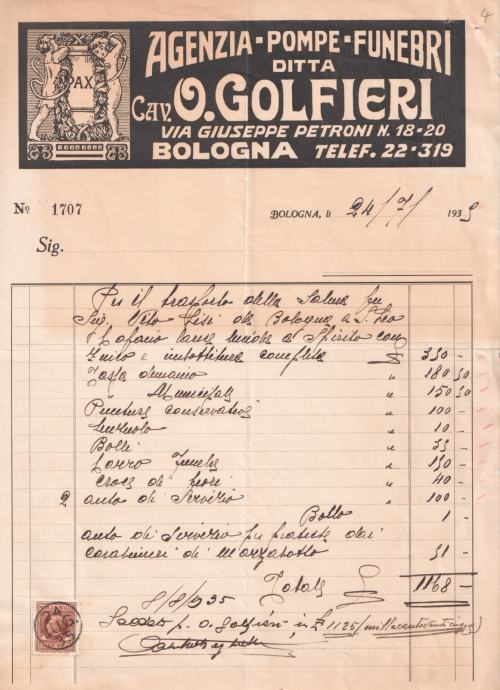 4
PAX
AGENZIA-POMPE-FUNEBRI
DITTA
CAV. O. GOLFIERI
VIA GIUSEPPE PETRONI N. 18-20
BOLOGNA TELEF. 22-319
No 1707
BOLOGNA, li 24/7/ 1935
Sig.
Per il trasporto della Salma fu
Vito da Bologna a S. Leo
lucida a Spirito con
Zinco e imbottitura completa £ 350 -
Tassa demanio " 180 50
" Municipale " 150 50
Punture conservative " 100 -
" 10 -
Bolli " 35 -
Carro Funebre " 150 -
Croce di fiori " 40 -
2 auto di Servizio " 100 -
Bollo 1 -
auto di Servizio per dai
carabinieri di Marzabotto 51 -
Totale £ 1168 -
8/8/935
Saldato p. O. Golfieri in £ 1125 (millecentoventicinque)